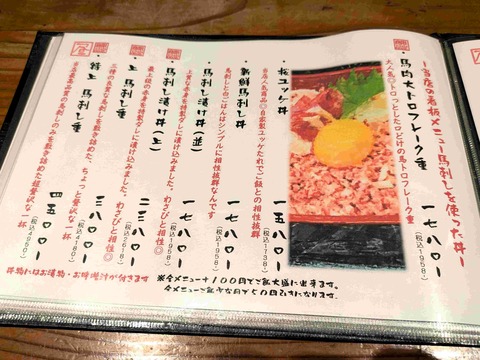 当店の看板メニュー馬刺しを使った丼
・馬肉大トロフレーク重 一七八〇ー
(税込1958)
大人気◎トロっとした口どけの馬トロフレーク重
・桜ユッケ丼 一五八〇ー
(税込1738)
当店人気商品◎自家製ユッケたれでご飯との相性抜群
・新鮮馬刺し丼 一七八〇ー
(税込1958)
馬刺しと白ごはんはシンプルに相性抜群なんです
・馬刺し漬け丼(並) 一七八〇ー
(税込1958)
上質な赤身を特製ダレに漬け込みました。わさびと相性◎
・馬刺し漬け丼(上) 二三八〇ー
(税込2618)
最上級の赤身を特製ダレに漬け込みました。わさびと相性◎
・上 馬刺し重 三八〇〇ー
(税込4180)
三種の良質な馬刺しを敷き詰めた、ちょっと贅沢な一杯
・特上 馬刺し重 四五〇〇ー
(税込4950)
当店最高品質の馬刺しのみを敷き詰めた超贅沢な一杯
丼物にはお漬物・お味噌汁が付きます
※全メニュー+100円でご飯大盛に出来ます。
全メニューご飯少な目で50円引きになります。